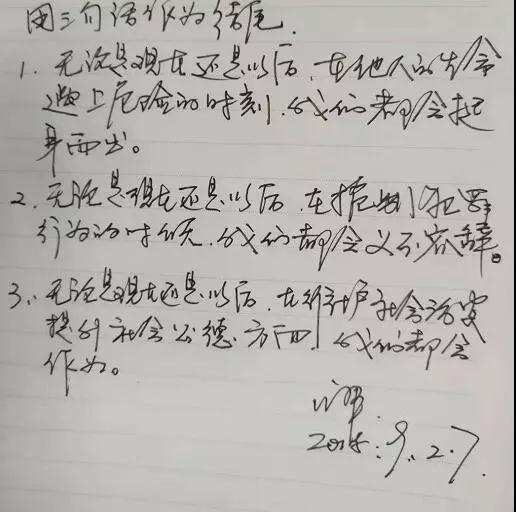 用三句话作为结尾.
1. 无论是现在还是以后,在他人的生命
遇上危险的时刻,我们都会挺
身而出。
2. 无论是现在还是以后,在打击犯罪
行为的时候,我们都会义不容辞。
3. 无论是现在还是以后,在维护社会治安
提升社会公德方面,我们都会
作为。
9.27.